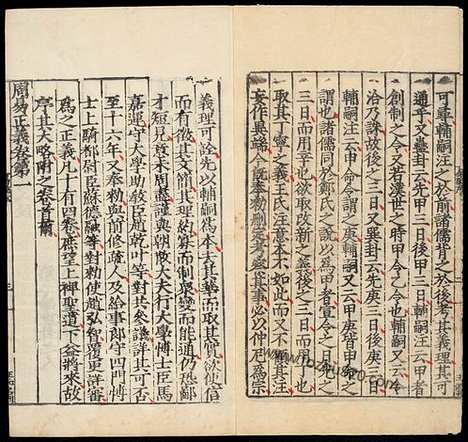 可尋輔嗣注之於前諸儒背之於後考其義理其可
通乎又蠱卦云先甲三日後甲三日輔嗣注云甲者
創制之令又若漢世之時甲令乙令也輔嗣又云令
洽乃誅故後之三日又巽卦云先庚三日後庚三日
輔嗣注云申命令謂之庚輔嗣又云甲庚皆申命之
謂也諸儒同於鄭氏之說以爲甲者宣令之日先之
三日而用辛也欲取改新之義後之三日而用丁也
取其丁寧之義王氏注意本不如此而又不顧其注
妄作異端今既奉勑刪定考察其事必以仲尼爲宗
義理可詮先以輔嗣爲本去其華而取其實欲使信
而有徵其文簡其理約寡而制衆變而能通仍恐鄙
才短見意未周盡謹與朝散大夫行大學博士臣馬
嘉運守大學助敎臣趙乾叶等對共參議詳其可否
至十六年又奉勑與前修疏人及給事郎守四門博
士上騎都尉臣蘇德融等對勑使趙弘智覆更詳審
爲之正義凡十有四卷庶望上裨聖道下益將來故
序其大略附之卷首爾
周易正義卷第一